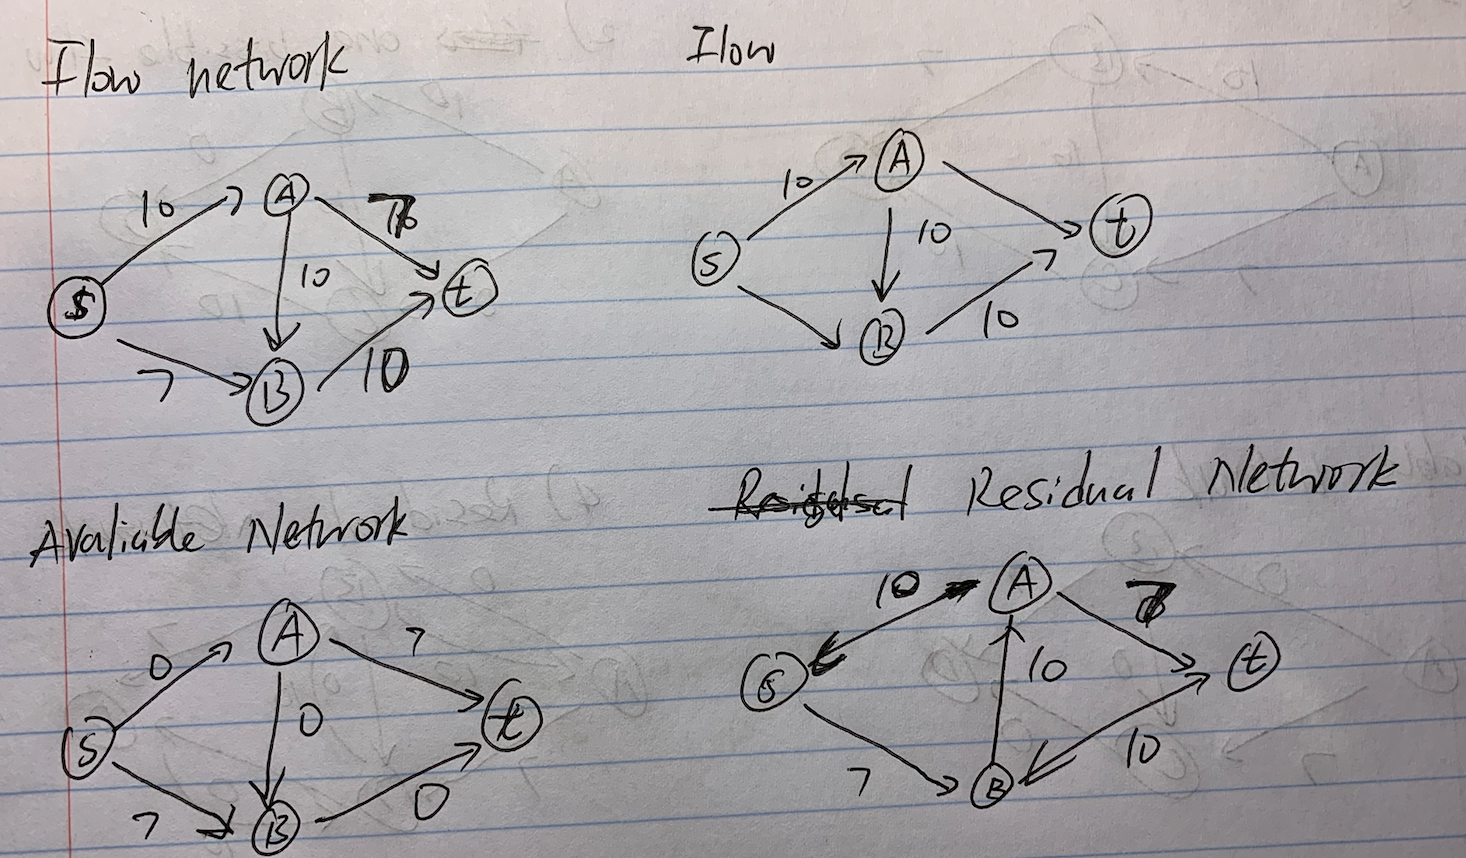 Flow network
10
A
10
S
t
7
B
10
Flow
10
A
10
S
t
B
10
Avaliable Network
A
7
0
0
S
t
7
B
0
Residual Network
10
A
7
10
S
t
7
B
10